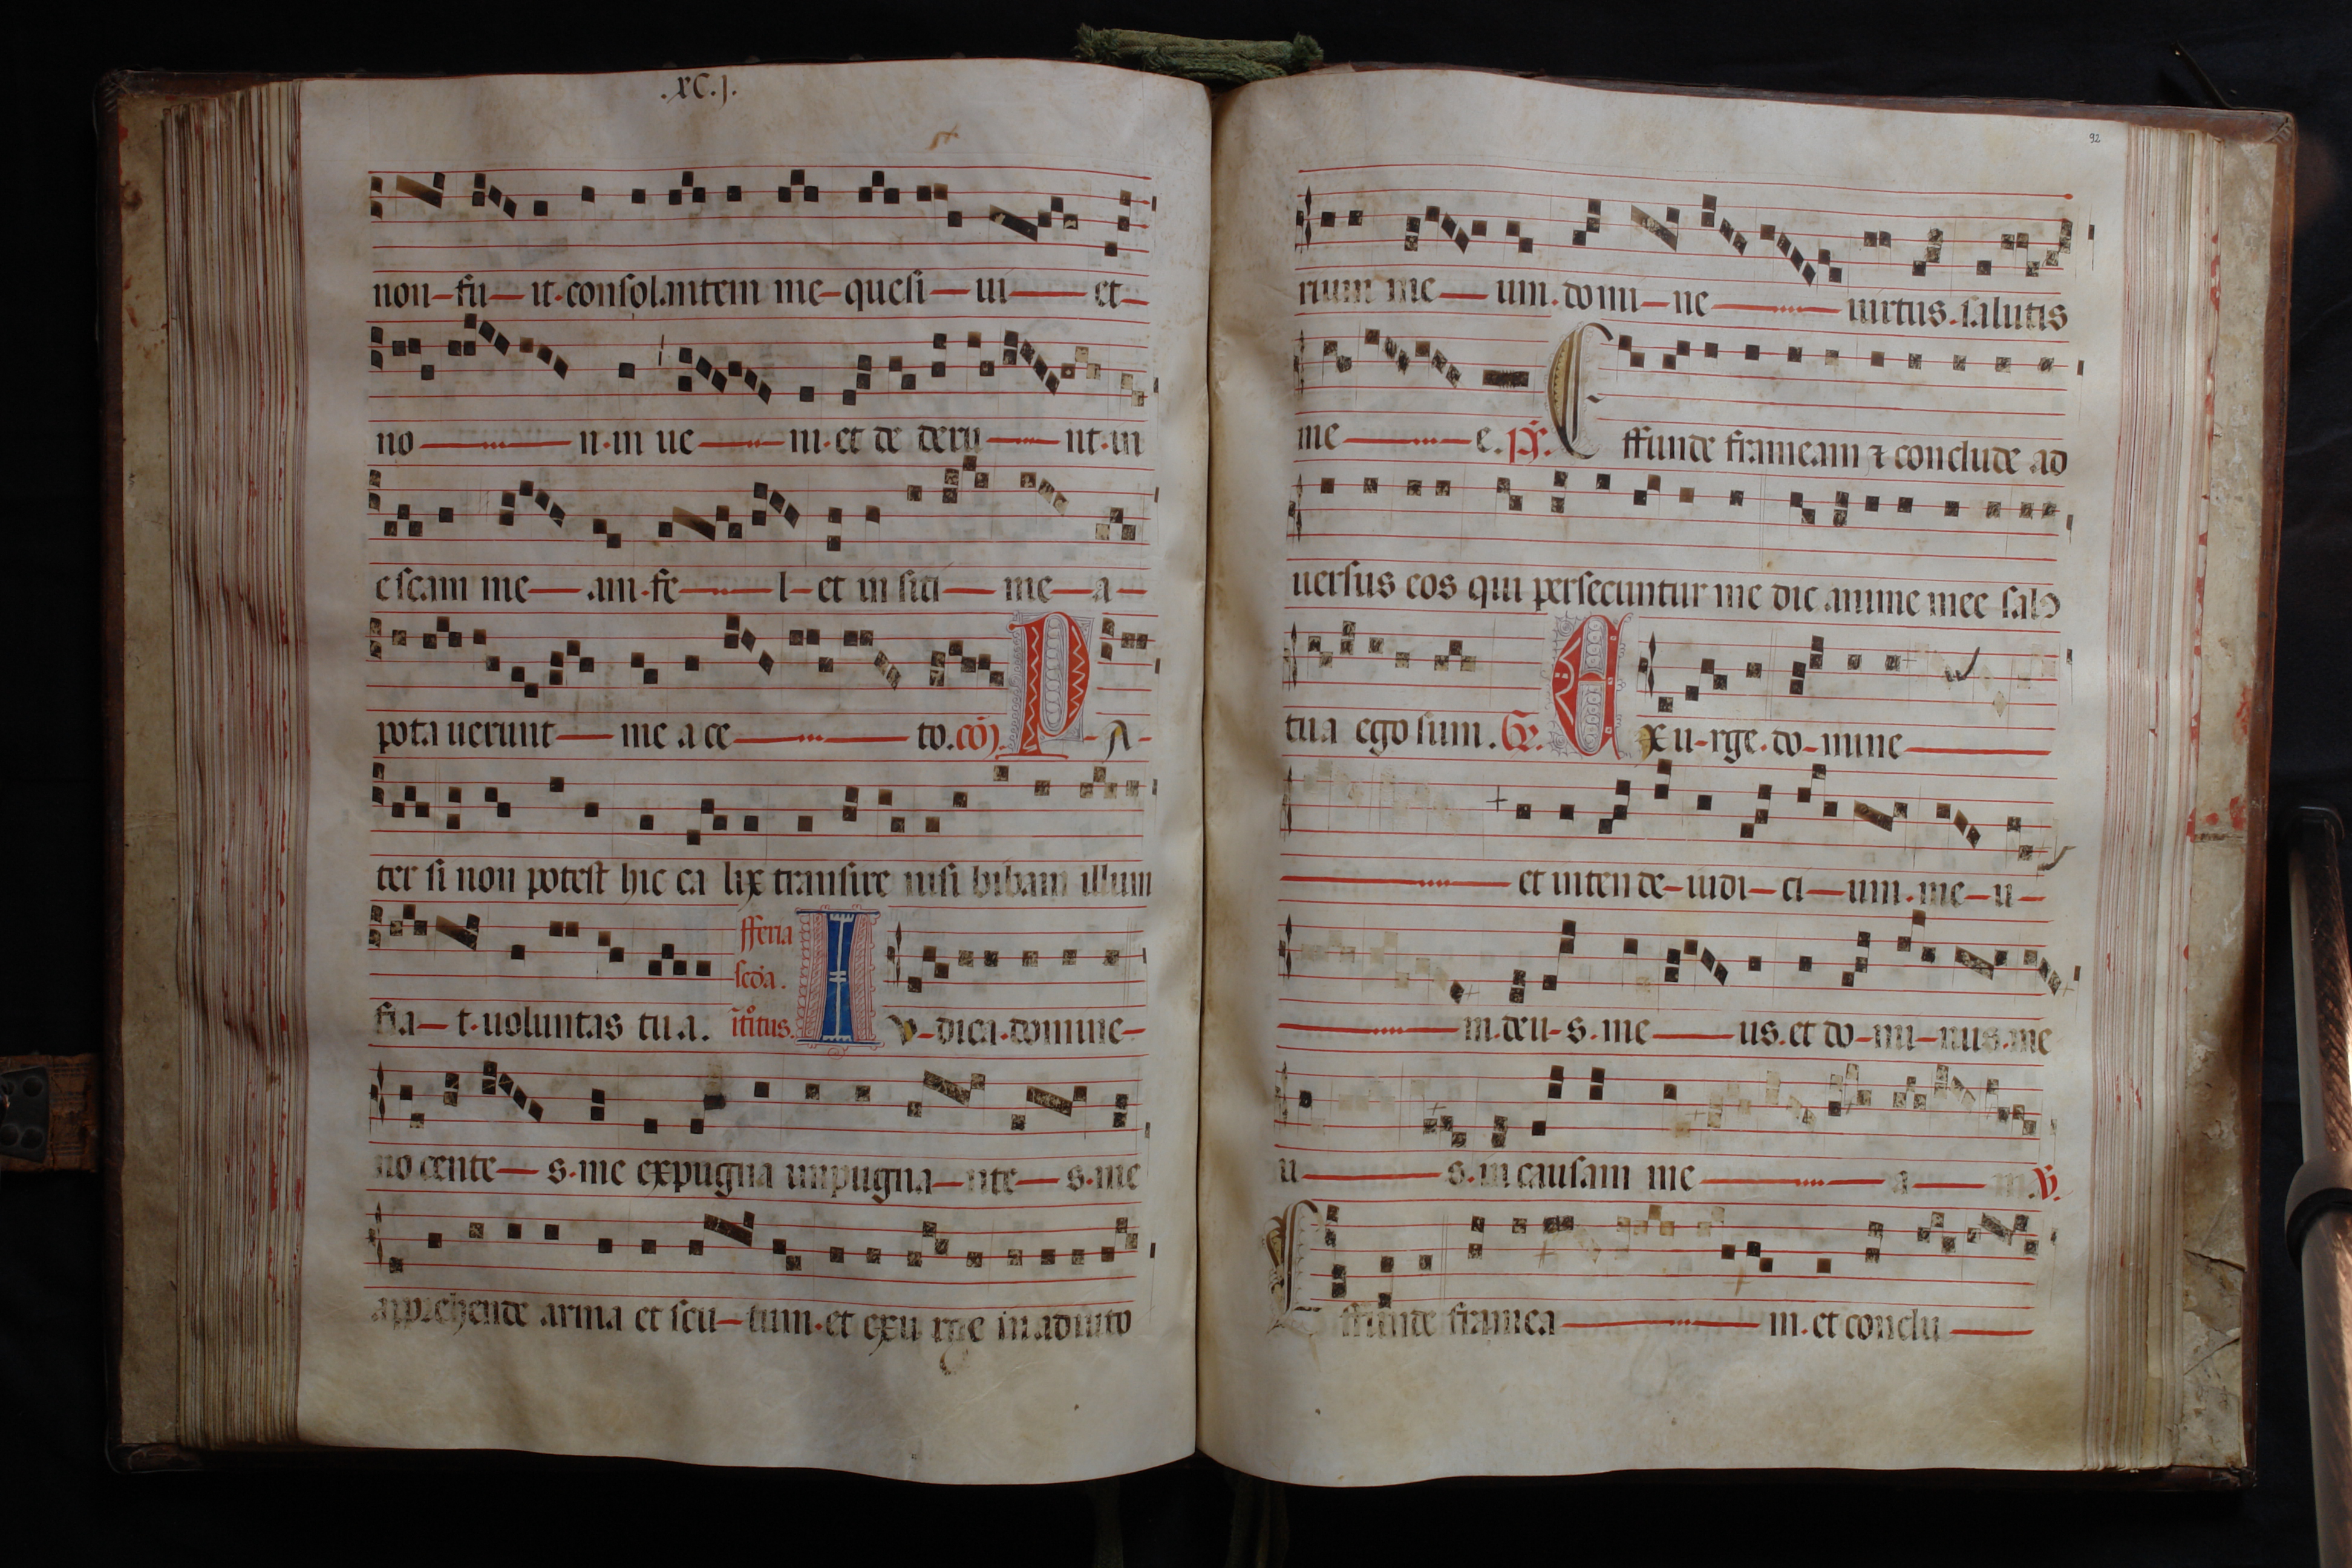 .xC.j.
non-fu-it.consolantem me-quesi-ui-et-
no-n.in ue-ni.et de deru-nt.in
escam me-am.fe-l-et in siti-me-a-
pota uerunt-me a ce-to.cō. P-A-
ter si non potest hic ca lix transire nisi bibam illum
fferia
scda.
fia-t.uoluntas tu.a. itoitus. I v-dica.domine-
no cente-s.me expugna inpugna-nte-s.me
apprehende arma et scu-tum.et exu rge in adiuto
92
rium me-um.domi-ne-uirtus.salutis
me-e.ps. E ffunde frameam ⁊ conclude ad
uersus eos qui persecuntur me dic anime mee sals
tua ego sum. Gr. E xu-rge.do-mine-
-et inten de-iudi-ci-um.me-u-
-m.deu-s.me-us.et do-mi-nus.me
u-s.in causam me-a-m.V.
E ffunde framea-m.et conclu-